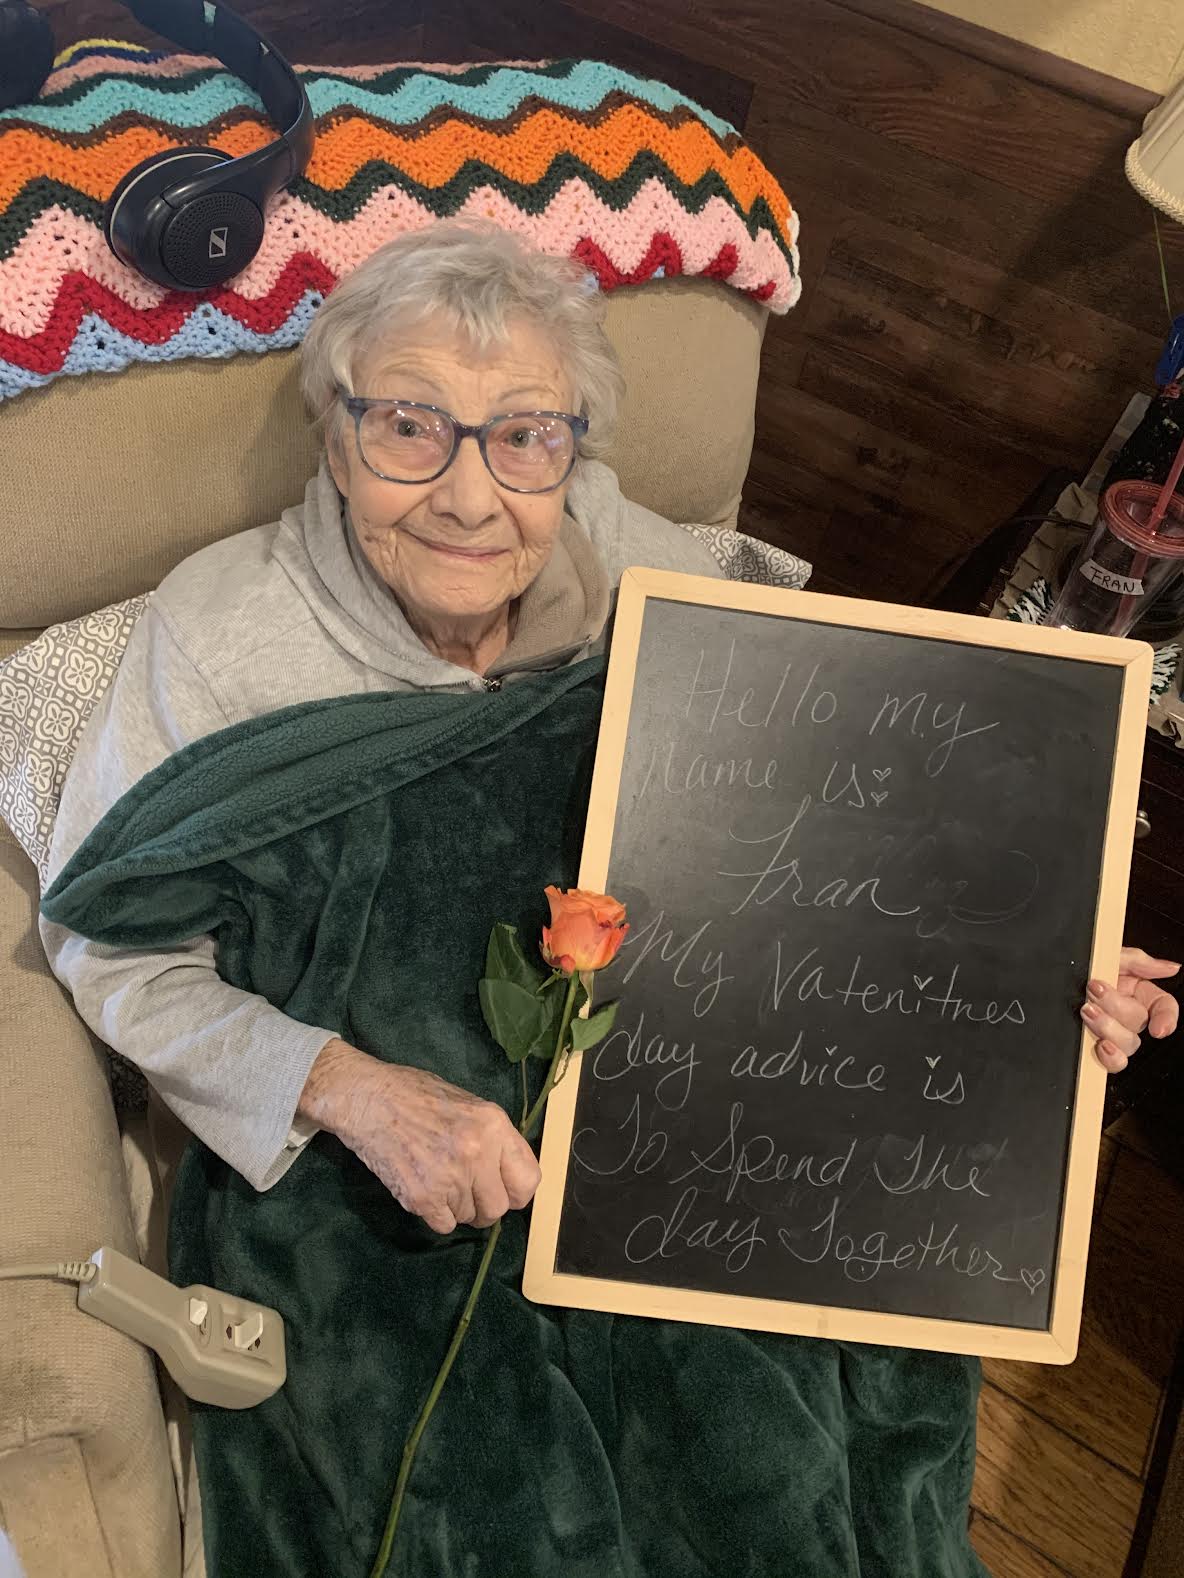 FRAN
Hello my
name is:
Fran
My Vatenitnes
day advice is
To Spend The
day Together